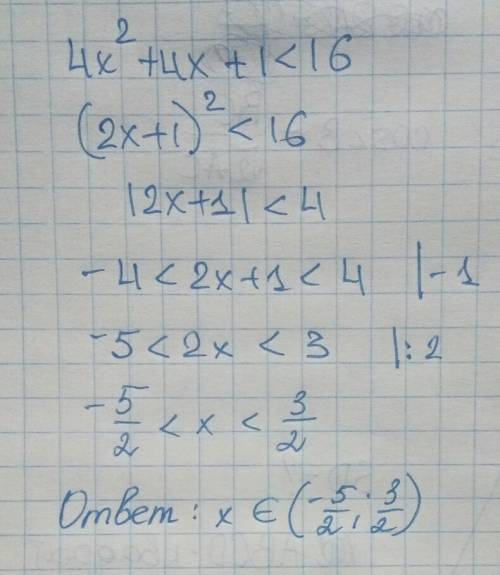 4x² + 4x + 1 < 16
(2x+1)² < 16
|2x+1| < 4
-4 < 2x+1 < 4 |-1
-5 < 2x < 3 |:2
-5/2 < x < 3/2
Ответ: x ∈ (-5/2; 3/2)